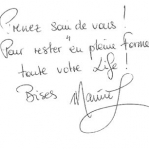 Prenez soin de vous !
Pour rester "en pleine forme
toute votre Life !
Bises